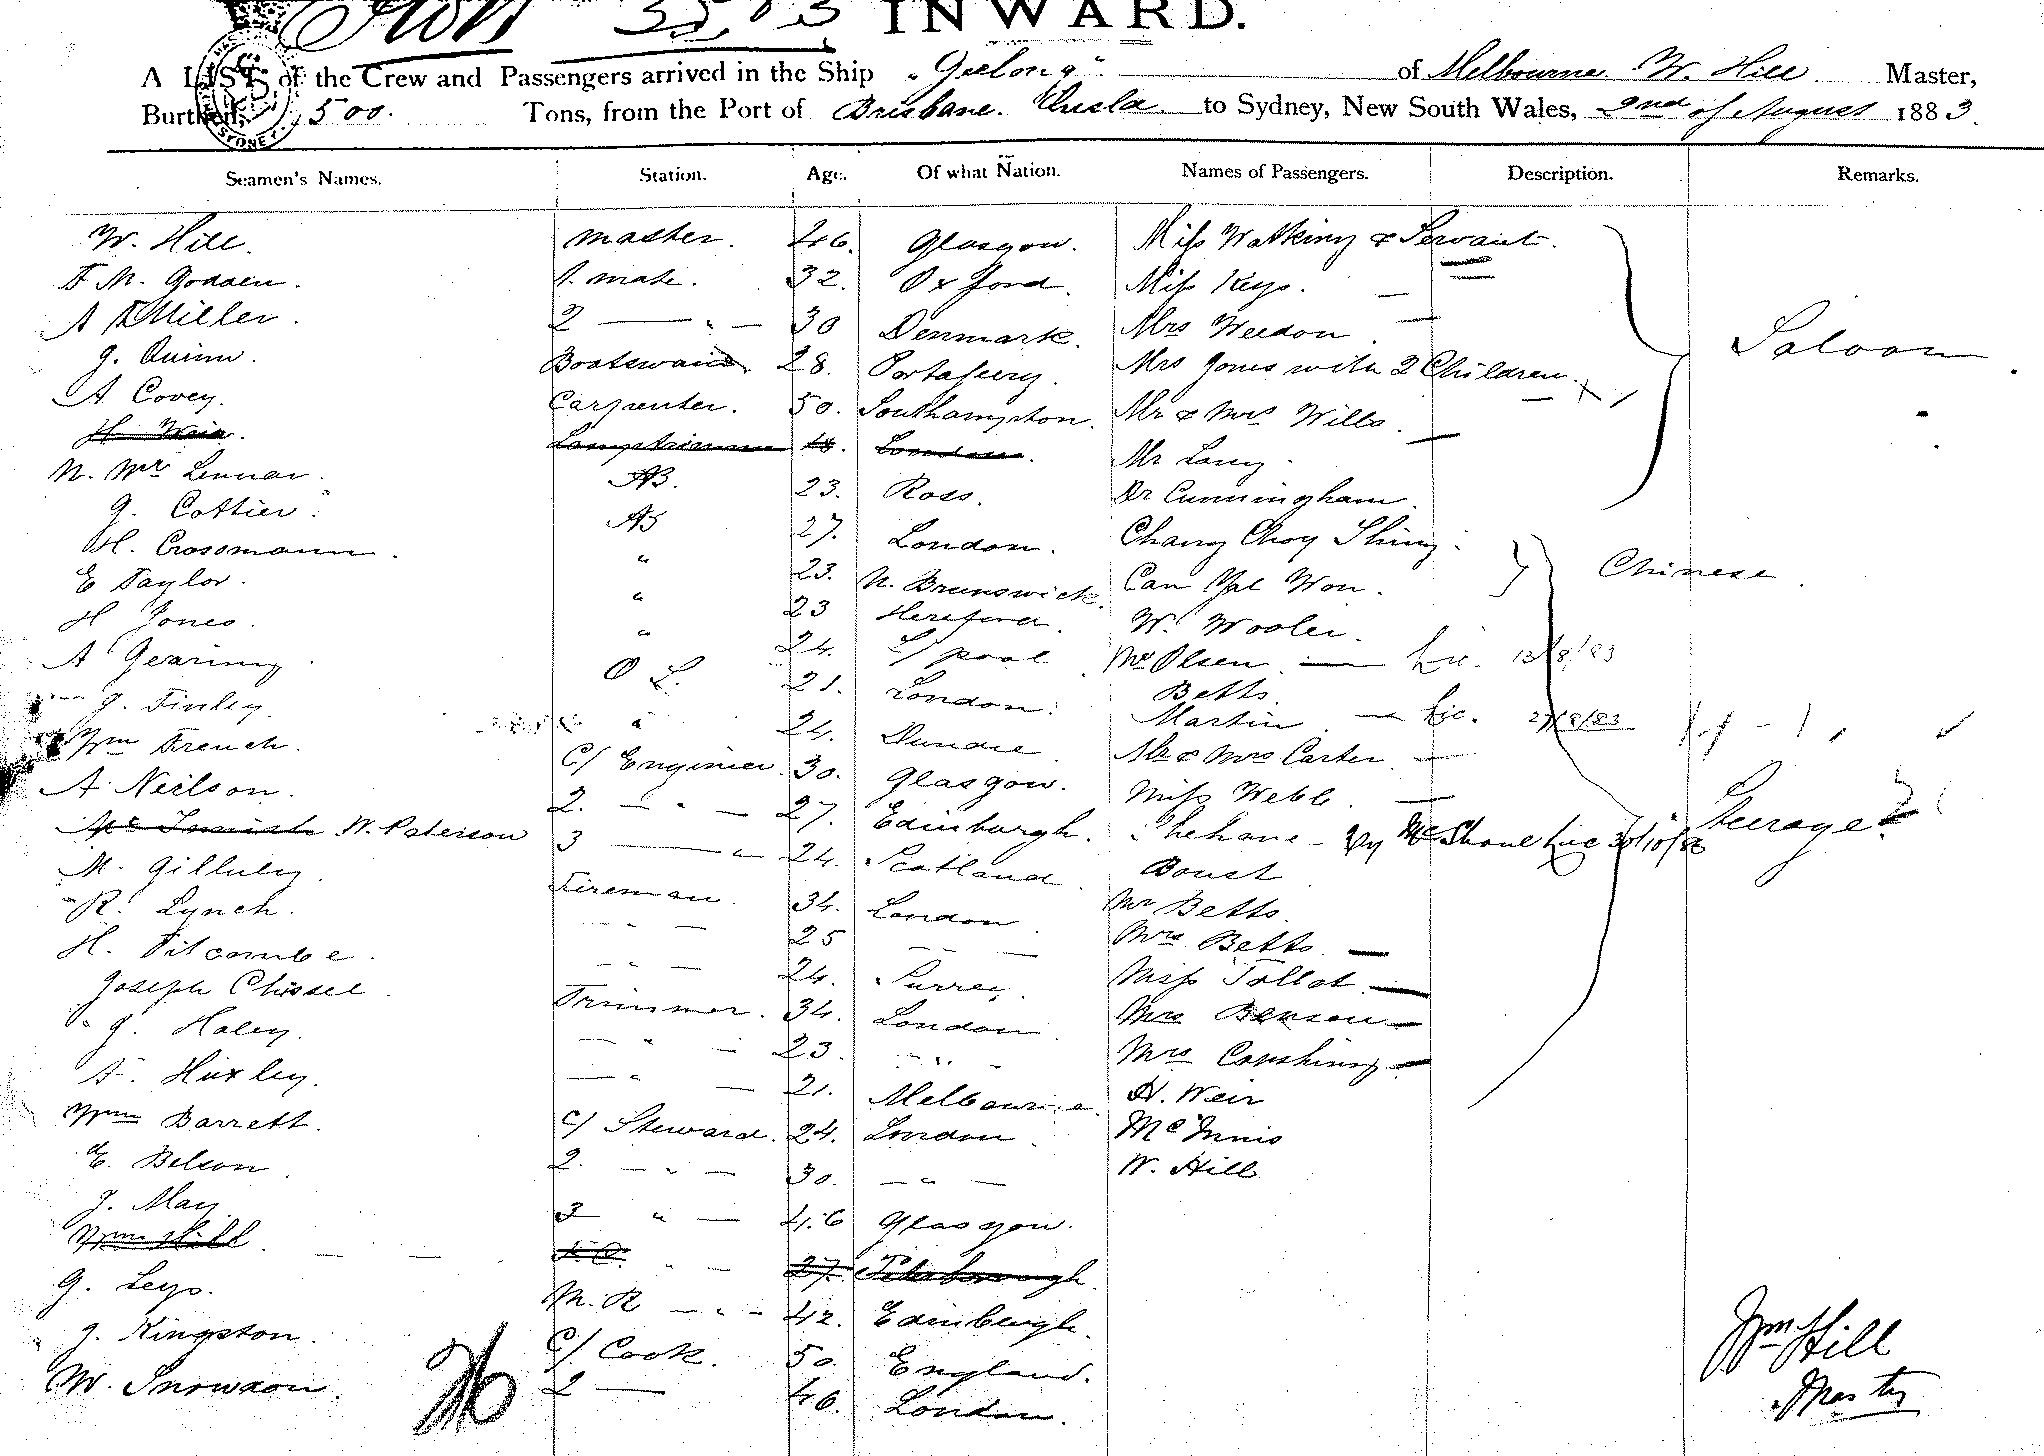 3503 INWARD.
A LIST of the Crew and Passengers arrived in the Ship "Geelong" of Melbourne W. Hill Master,
Burthen, 500. Tons, from the Port of Brisbane. to Sydney, New South Wales, 2nd of August 1883.
Seamen's Names. Station. Age. Of what Nation. Names of Passengers. Description. Remarks.
W. Hill. master. 46. Glasgow. Miss Watkins & Servant.
F M. Godden. 1. mate. 32. Oxford. Miss Keys. —
A Miller. 2 — " — 30 Denmark. Mrs Weedon — Saloon
J. Quinn. Boatswain 28. Portaferry. Mrs Jones with 2 Children.
A Covey. Carpenter. 50. Southampton. Mr & Mrs Wills.
H. Weir. Lamptrimmer 48. London. Mr Lang.
N. Mc Lennan. AB. 23. Ross. Dr Cunningham.
J. Cottier. AB 27. London. Chang Choy Shing.
H. Crossmann. " 23. N. Brunswick. Won. Chinese.
E Taylor. " 23 Hereford. W. Wooler.
H Jones. " 24. L/pool Mr Olsen — Lic. 13/8/83
A Gearing. O S. 21. London. Betts
J. Finley. " 24. Dundee Martin — Lic. 27/8/83
Wm French. C/ Engineer. 30. Glasgow. Mr & Mrs Carter —
A. Neilson. 2. — " — 27. Edinburgh. Miss Webb. — Steerage
W. Paterson 3 — " 24. Scotland Shehane - Mc Shane Lic
M. Gilluley. Fireman. 34. London Boust
R. Lynch. — " — 25 — — Mr Betts.
H. Pitcombe. — " — 24. Surrey. Mrs Betts —
Joseph Chissel Trimmer. 34. London Miss Tallot —
J. Haley. — " — 23. — " — Mrs Benson —
F. Huxley. — " — 21. Melbourne. Mrs Conshing —
Wm Barrett. C/ Steward. 24. London H. Weir
E. Belson 2. — " — 30. — " — McInnis
J. May 3 " — 46 Glasgow. W. Hill
Wm Hill — — " — 27.
G. Leys. M. R — " — 42. Edinburgh.
J. Kingston. C/ Cook. 50. England.
W. Snowdon. 2 — 46. London.
Wm Hill
Master